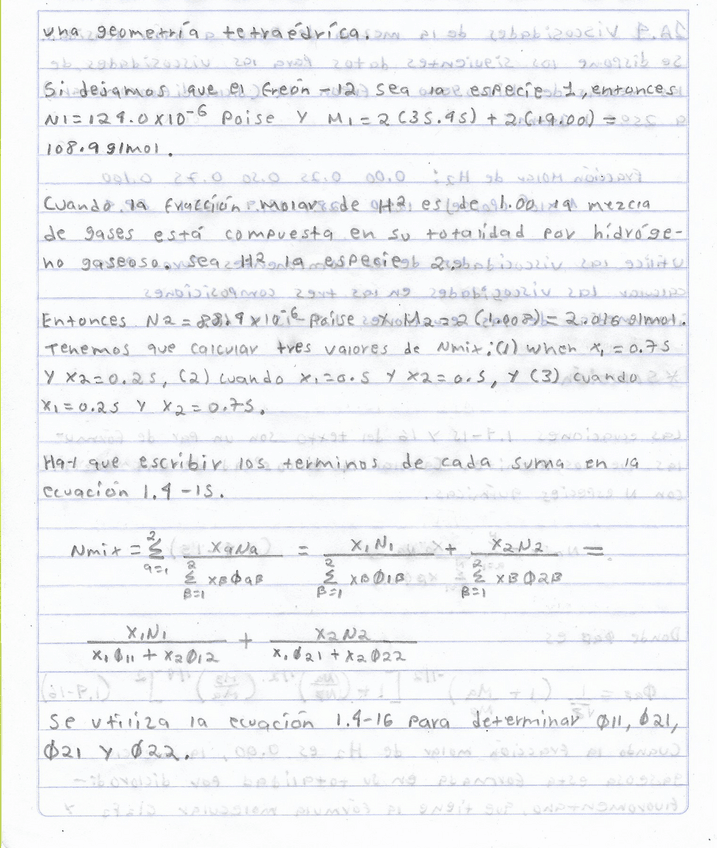 una geometría tetraédrica.
Si dejamos que el freón -12 sea la especie 1, entonces
N1=124.0x10^-6 Poise Y M1 = 2(35.45) + 2(19.00) =
108.9 g/mol.
Cuando la fracción Molar de H2 es de 1.00 la mezcla
de gases está compuesta en su totalidad por hidróge-
no gaseoso. sea H2 la especie 2.
Entonces N2 = 88.9x10^-6 Poise Y M2 = 2(1.008) = 2.016 g/mol.
Tenemos que calcular tres valores de Nmix; (1) when x1 = 0.75
Y X2=0.25, (2) cuando x1=0.5 Y X2=0.5, Y (3) cuando
x1=0.25 Y X2=0.75.
Hay que escribir los terminos de cada suma en la
ecuación 1.4-15.
Nmix = 2 Σ a=1 XaNa / 2 Σ β=1 XBØaB = X1N1 / 2 Σ β=1 XBØ1B + X2N2 / 2 Σ β=1 XBØ2B =
X1N1 / X1Ø11 + X2Ø12 + X2N2 / X1Ø21 + X2Ø22
Se utiliza la ecuación 1.4-16 para determinar Ø11, Ø21,
Ø21 Y Ø22.